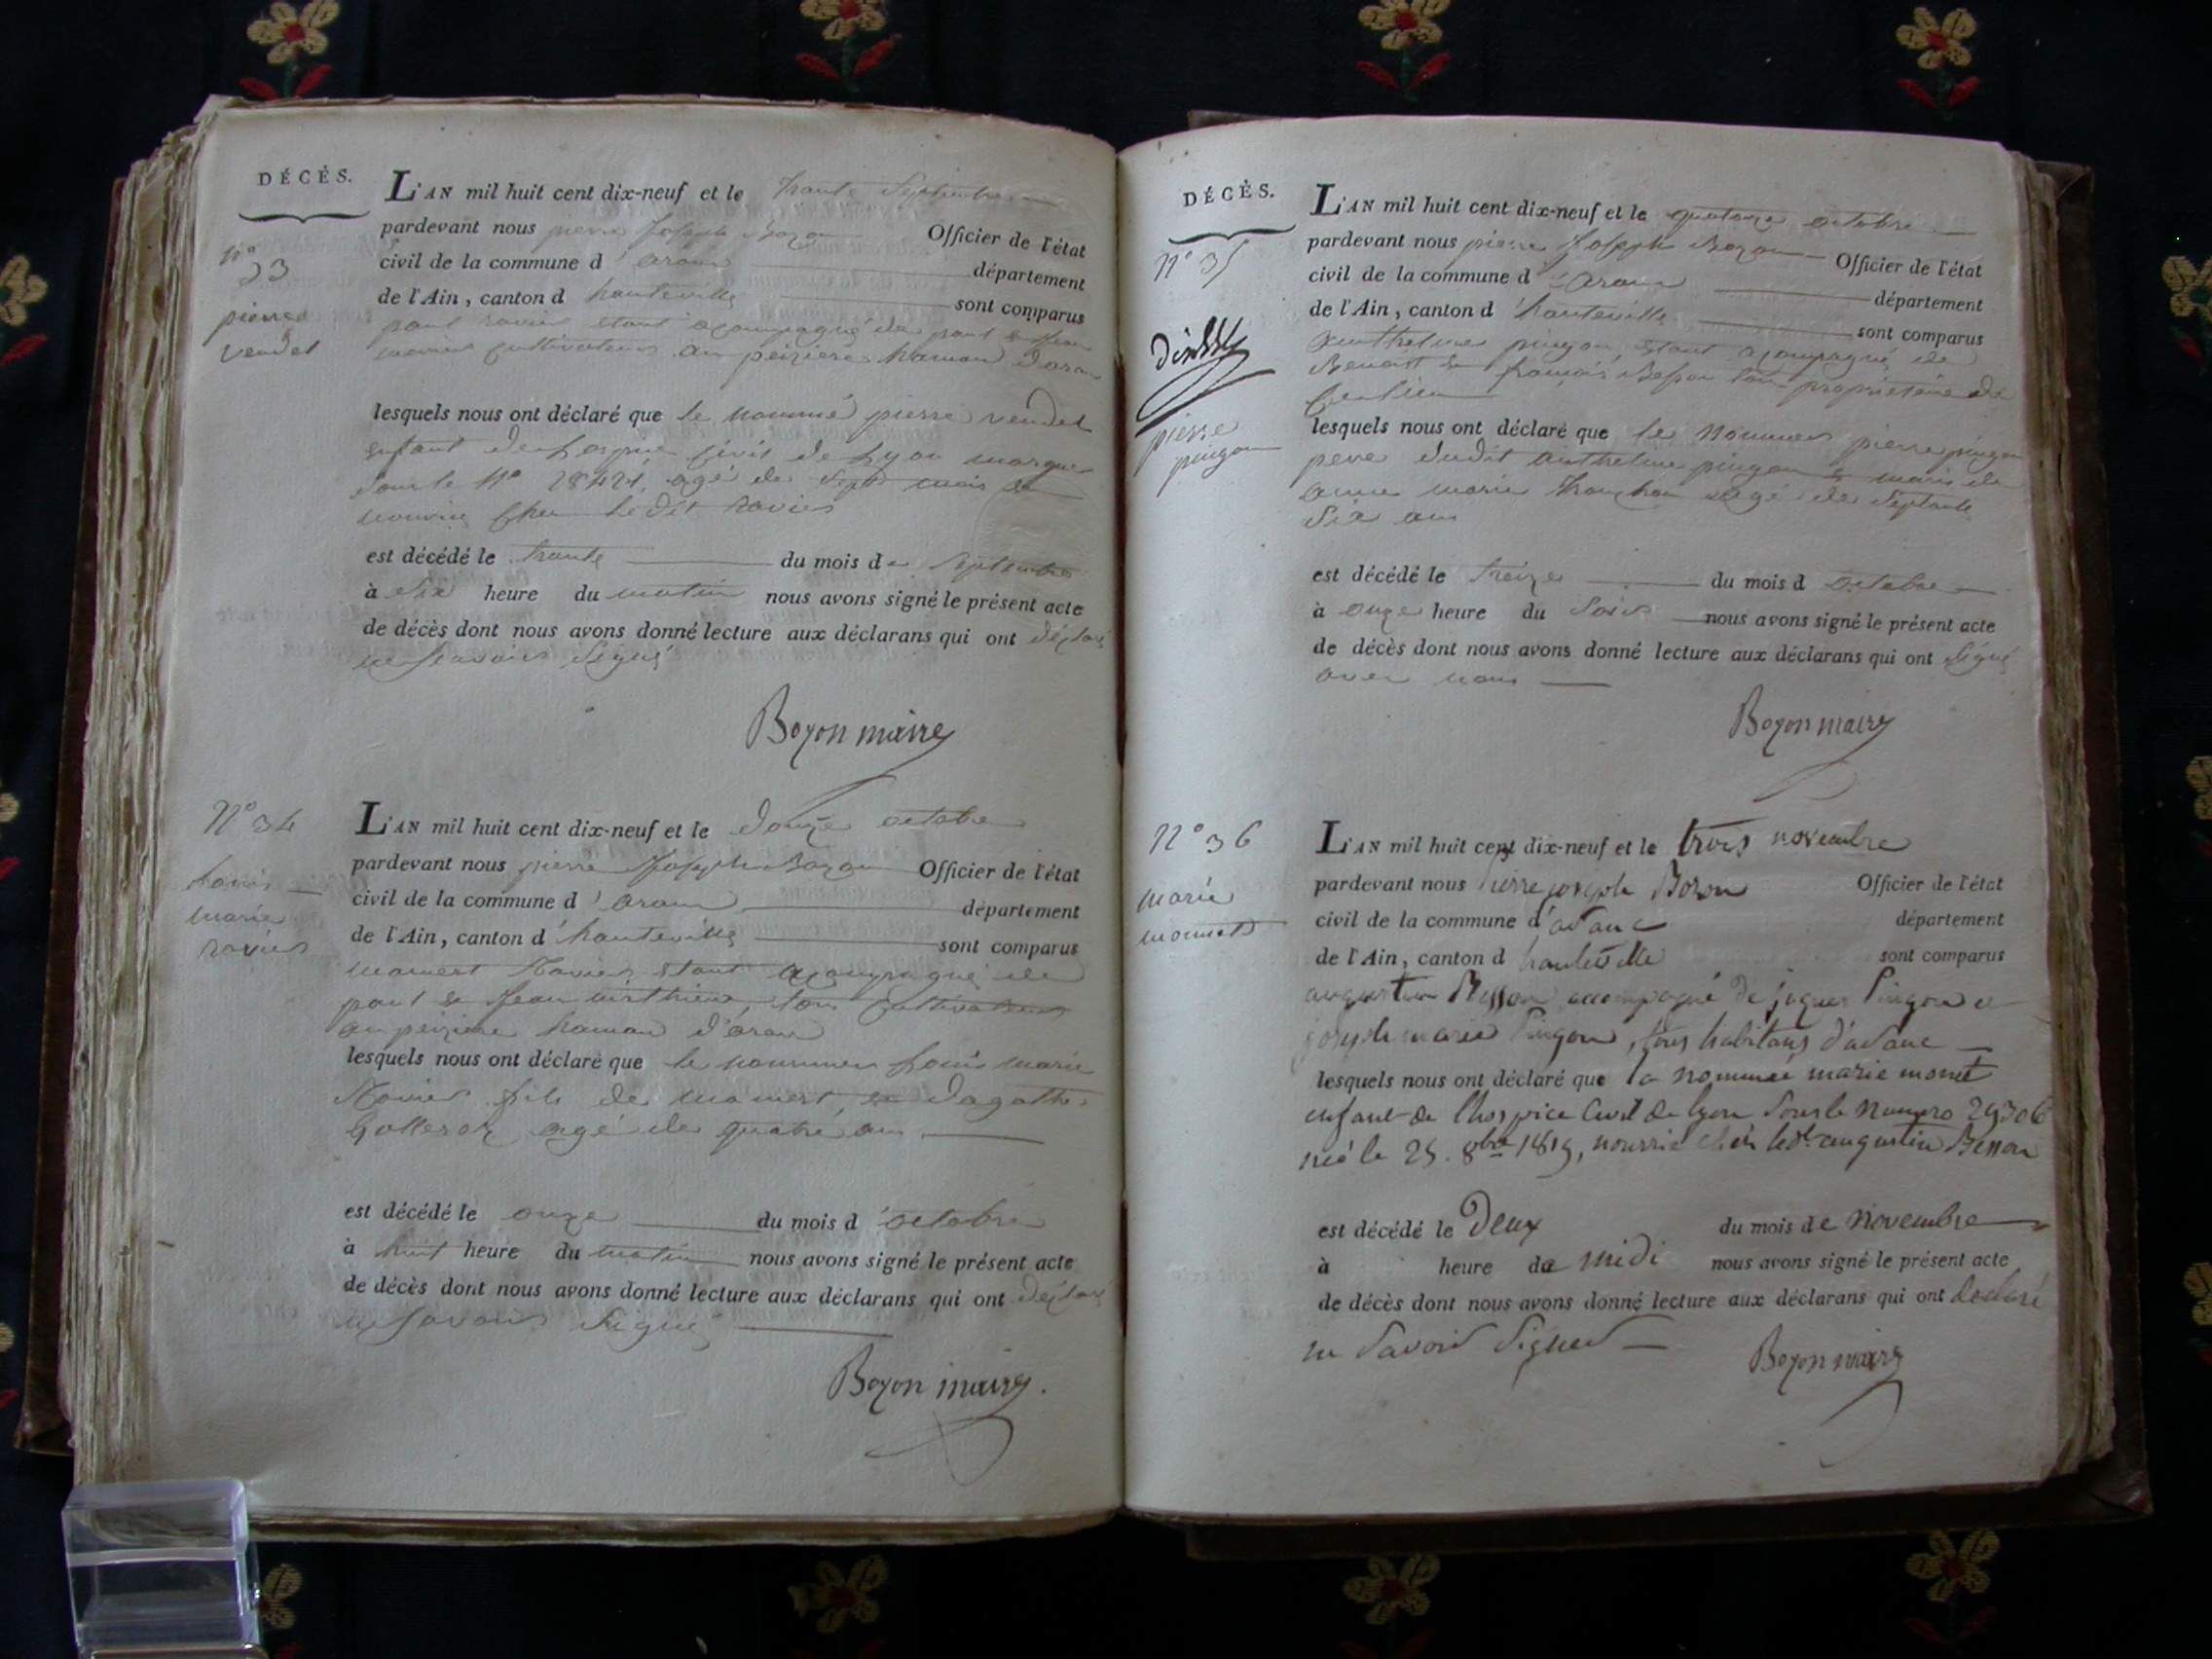 DÉCÈS.
L'AN mil huit cent dix-neuf et le trante Septembre
pardevant nous pierre Joseph Bozon Officier de l'état
civil de la commune d'aranc département
de l'Ain, canton d hauteville sont comparus
paul ravier etant acompagné de paul & Jean
ravier cultivateurs au peizieres hamau d'aranc
N°
33
pierre
vendet
lesquels nous ont déclaré que le nommé pierre vendet
enfant de hospice civil de Lyon marque
sous le N° 28424, agé de sept mois en
nourice chez le dit ravier
est décédé le trante du mois de Septembre
à Six heure du matin nous avons signé le présent acte
de décès dont nous avons donné lecture aux déclarans qui ont déclaré
ne scavoir signé
Bozon maire
N° 34
Louis
marie
ravier
L'AN mil huit cent dix-neuf et le douze octobre
pardevant nous pierre Joseph Bozon Officier de l'état
civil de la commune d'aranc département
de l'Ain, canton d'hauteville sont comparus
mamert Ravier etant acompagné de
paul & Jean tous Cultivateurs
au peiziere hamau d'aranc
lesquels nous ont déclaré que le nommer Louis marie
Ravier fils de mamert, & d'agathe
agé de quatre ans
est décédé le onze du mois d'octobre
à huit heure du matin nous avons signé le présent acte
de décès dont nous avons donné lecture aux déclarans qui ont déclaré
ne savoir signé
Bozon maire.
DÉCÈS.
N° 35
pierre
pingon
L'AN mil huit cent dix-neuf et le quatorze octobre
pardevant nous pierre Joseph Bozon Officier de l'état
civil de la commune d'aranc département
de l'Ain, canton d'hauteville sont comparus
anthelme pingon etant acompagné de
Benoit & françois Besson tous propriétaire de
lesquels nous ont déclaré que le Nommer pierre pingon
pere dudit anthelme pingon & maris de
anne marie agé de Septante
Six ans
est décédé le treize du mois d octobre
à onze heure du Soir nous avons signé le présent acte
de décès dont nous avons donné lecture aux déclarans qui ont Signé
avec nous
Bozon maire
N° 36
marie
monnet
L'AN mil huit cent dix-neuf et le trois novembre
pardevant nous Pierre joseph Bozon Officier de l'état
civil de la commune d'aranc département
de l'Ain, canton d hauteville sont comparus
augustin Besson accompagné de jaques Pingon et
joseph marie Pingon, tous habitans d'aranc
lesquels nous ont déclaré que la nommée marie monet
enfant de l'hospice Civil de lyon sous le numero 29306
née le 25. 8bre 1819, nourrie chés ledt augustin Besson
est décédé le Deux du mois de novembre
à heure de midi nous avons signé le présent acte
de décès dont nous avons donné lecture aux déclarans qui ont déclaré
ne savoir signer
Bozon maire